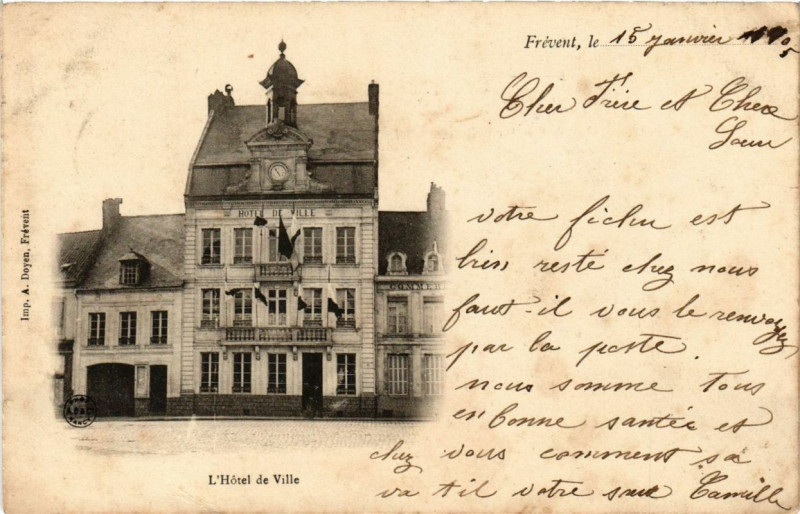 Frévent, le 15 janvier 1905
Cher Frère et Chere
Sœur
votre fichu est
bien resté chez nous
faut-il vous le renvoyez
par la poste.
nous somme tous
en bonne santée et
chez vous comment sa
va t il votre sœur Camille
HOTEL DE VILLE
COMMER
Imp. A. Doyen, Frévent
L'Hôtel de Ville